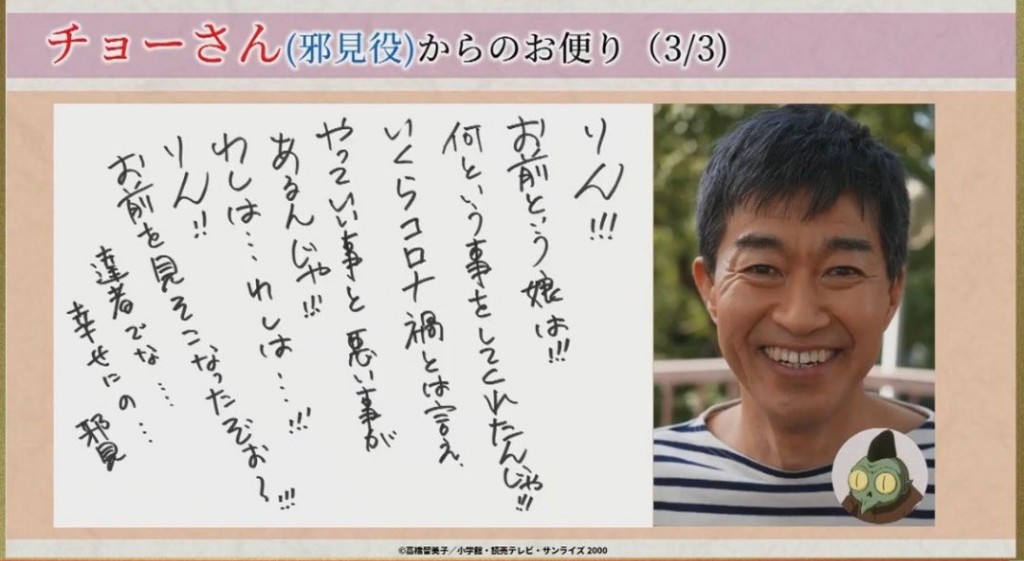 チョーさん(邪見役)からのお便り（3/3)
りん!!!
お前という娘は!!!
何という事をしてくれたんじゃ!!!
いくらコロナ禍とは言え、
やっていい事と悪い事が
あるんじゃ!!!
わしは…わしは…!!!
りん!!
お前を見そこなったぞぉ〜!!!
達者でな……
幸せにの…
邪見
©高橋留美子／小学館・読売テレビ・サンライズ 2000